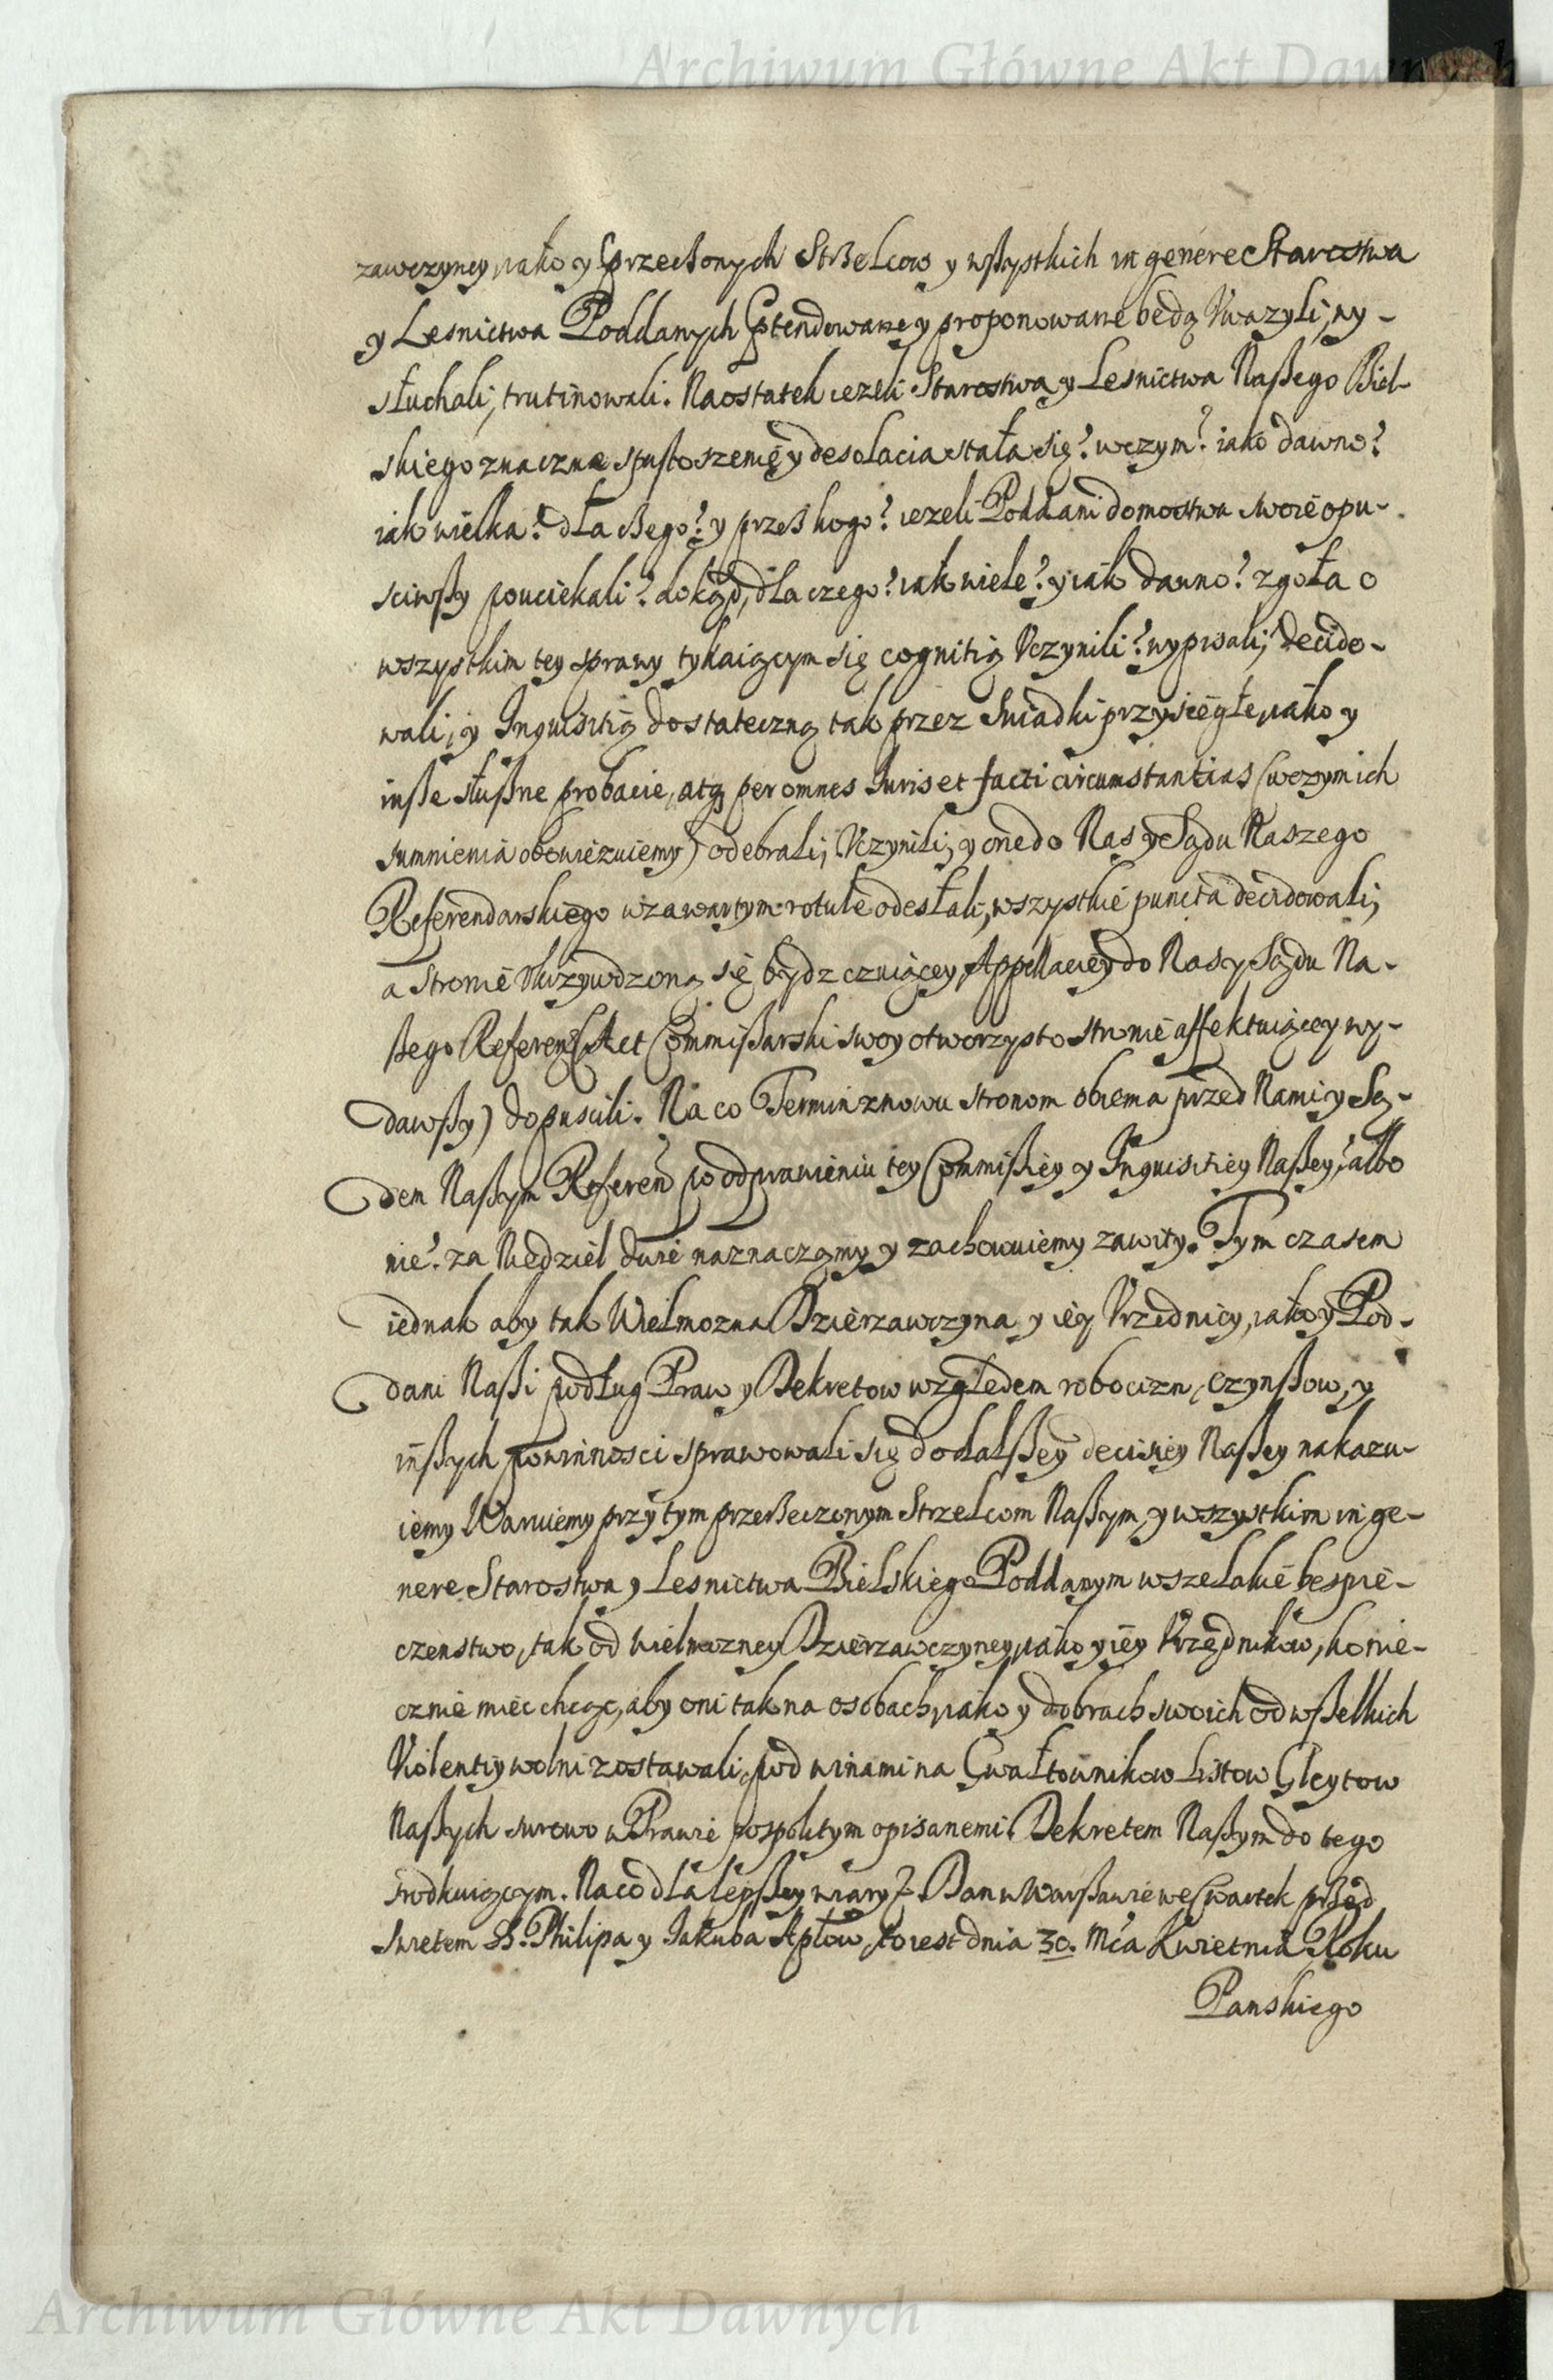 Archiwum Główne Akt Dawnych
zawczyney, iako y przeczonych Strzelcow y wßystkich in genere Starostwa
y Lesnictwa Poddanych ptendowane y proponowane będą Uwazyli, wy-
słuchali, trutinowali. Naostatek iezeli Starostwa y Lesnictwa Naßego Biel-
skiego znaczne spustoszenię y desolacia stała się? wczym? iako dawno?
iak wielka? dla czego? y przeß kogo? iezeli Poddani domostwa swoie opu-
sciwßy pouciekali? dokąd, dla czego? iak wiele? y iak dawno? zgoła o
wszystkim tey sprawy tykaiącym się cognitią Uczynili? wypisali, decido-
wali, y Inquisitią dostateczną tak przez Swiadki przysięgłe, iako y
inße słußne probacie, atq per omnes Iuris et facti circumstantias (wczym ich
sumnienia obowięzuiemy) odebrali, Uczynili, y one do Nas y Sądu Naszego
Referendarskiego wzawartym rotule odesłali, wszystkie puncta decidowali,
a Stronie Ukrzywdzoną się bydz czuiącey, Appellaciey do Nas y Sądu Na-
ßego Referen (Act Commißarski swoy otworzysto stronie affektuiącey wy-
dawßy) dopuscili. Na co Termin znowu stronom obiema przed Nami y Są-
dem Naßym Referen po odprawieniu tey Commißiey y Inquisitiey Naßey, albo
nie? za Niedziel dwie naznaczamy y zachowuiemy zawity. Tym czasem
iednak aby tak Wielmozna Dzierzawczyna y iey Urzędnicy, iako y Pod-
dani Naßi podług Praw y Dekretow względem robocizn, czynßow, y
inßych powinnosci sprawowali się do dalßey decisiey Naßey nakazu-
iemy Waruiemy przy tym przerzeczonym Strzelcom Naßym y wszystkim in ge-
nere Starostwa y Lesnictwa Bielskiego Poddanym wszelakie bespie-
czenstwo, tak od Wielmozney Dzierzawczyney, iako y iey Urzędnikow, konie-
cznie miec chcąc, aby oni tak na osobach, iako y dobrach swoich od wßelkich
Violentiy wolni zostawali, pod winami na Gwałtownikow Listow Gleytow
Naßych surowo w Prawie pospolitym opisanemi Dekretem Naßym do tego
srodkuiącym. Na co dla lepßey wiary Z. Dan w Warßawie we Czwartek przed
Swietem SS. Philipa y Jakuba Apłow, to iest dnia 30. Mca Kwietnia Roku
Panskiego
Archiwum Główne Akt Dawnych